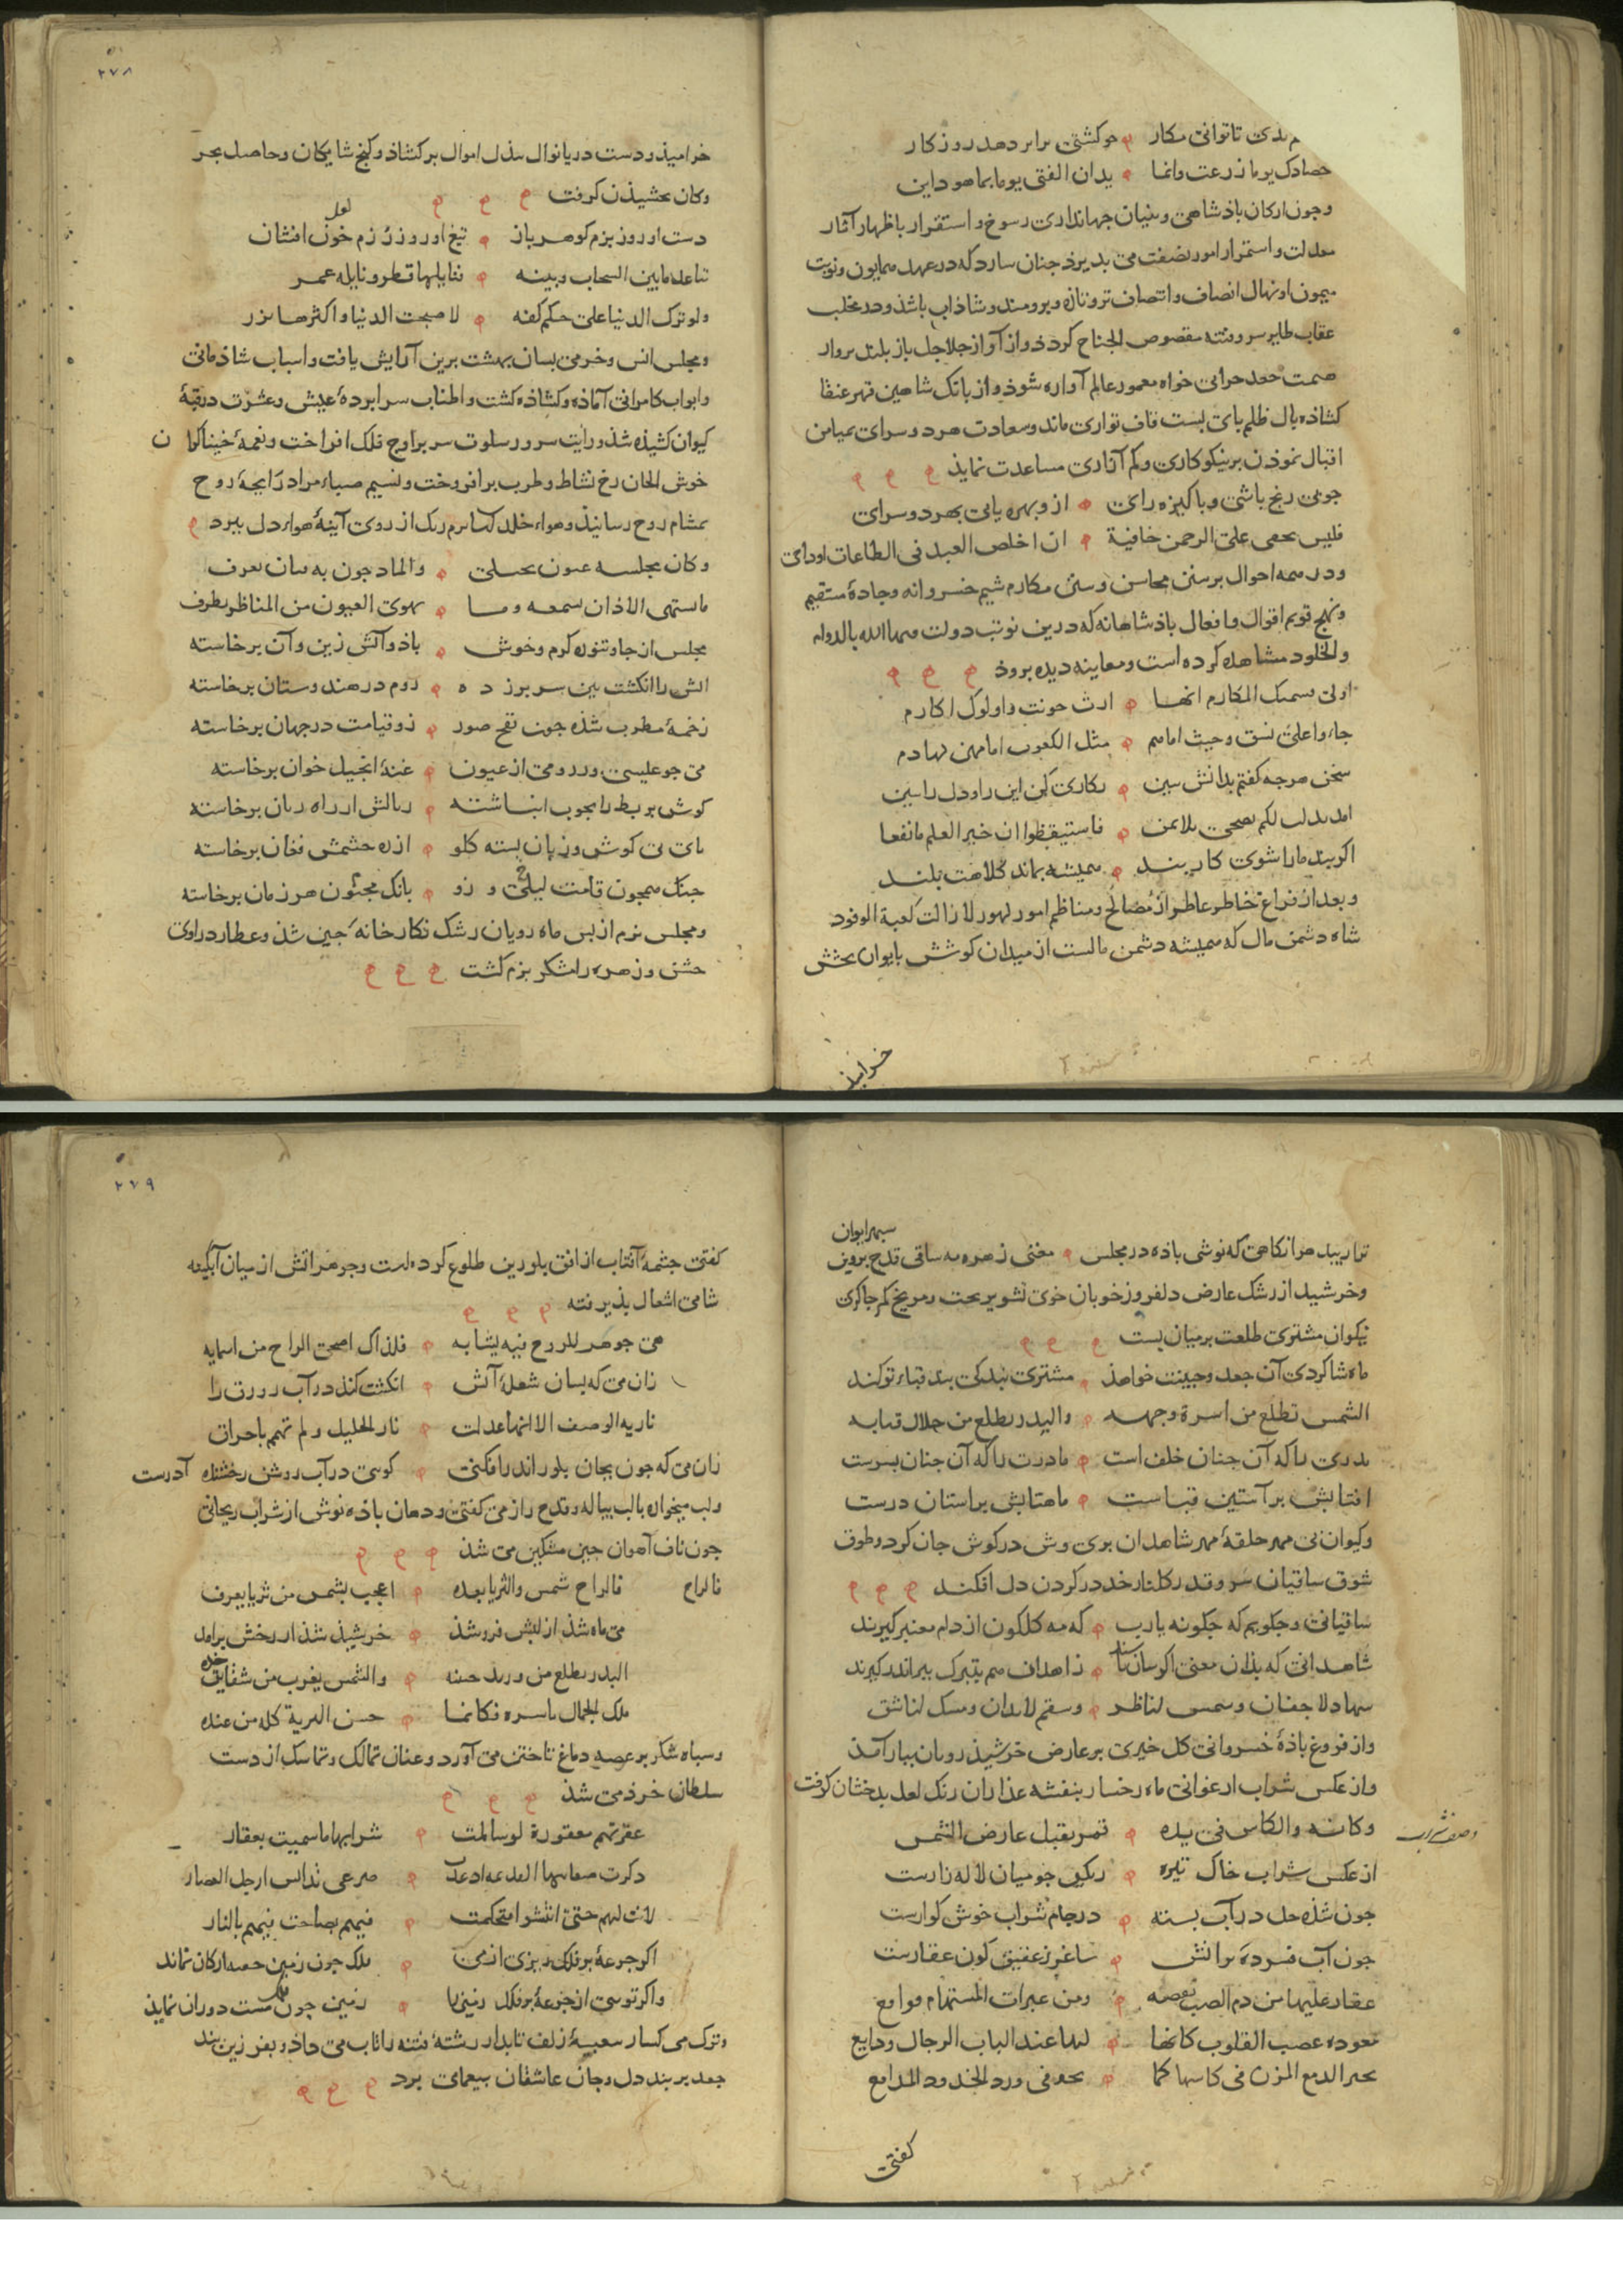 تا توانی مکار چو کشتی برابر دهد روزکار
حصادک یوما زرعت وانما یدان الفتی یوما بما هو داین
وجون ارکان باذشاهی وبنیان جهانداری رسوخ و استقرار باظهار آثار
معدلت و استمرار امور نصفت می بذیرذ جنان سازد که در عهد همایون ونوبت
میمون او نهال انصاف وانتصاف تروتازه وبرومند وشاذاب باشذ
عقاب طایر سر وفتنه مقصوص الجناح کردذ واز آواز جلاجل باز بلند برواز
همت جغد خواه معمور عالم آواره شوذ واز بانک شاهین قهر عنقا
کشاذه بال ظلم بای بست قاف تواری ماند وسعادت هر دو سرای
اقبال نموذن بر نیکوکاری وکم آزاری مساعدت نمایذ
جو بی رنج باشی وباکیزه رای ازو بهره یابی بهر دو سرای
فلیس یخفی علی الرحمن خافیة ان اخلص العبد فی الطاعات اودای
ودر همه احوال بر سنن محاسن وسنی مکارم شیم خسروانه وجادهٔ مستقیم
ونهج قویم اقوال وافعال باذشاهانه که درین نوبت دولت بالدوام
والخلود مشاهده کرده است ومعاینه دیده بروذ
المکارم انها ارث
جاءوا علی نسق وحیث امامهم مثل الکعوب امامهن لهاذم
سخن هرجه کفتم بدانش ببین بکاری کن این را ودل را ببین
لکم نصحی بلا فاستیقظوا ان خیر العلم ما نفعا
اکر بند مارا شوی کاربند همیشه بماند کلاهت بلند
وبعد از فراغ خاطر عاطر از مصالح ومناظم امور لهور لازالت کعبة الوفود
شاه دشمن مال که همیشه دشمن مالست از میدان کوشش بایوان بخشش
خرامیذ
۲۷۸
خرامیذ ودست دریا نوال ببذل اموال برکشاذ وکنج شایکان وحاصل بحر
وکان بخشیذن کرفت
دست او روز بزم کوهر باز تیغ او روز رزم خون افشان
لعل
تباعد ما بین السحاب وبینه فنایلها قطر ونایله غمر
ولو ترک الدنیا علی حکم کفه لاصبحت الدنیا واکثرها نزر
ومجلس انس وخرمی بسان بهشت برین آرایش یافت واسباب شاذمانی
وابواب کامرانی آماذه وکشاذه کشت واطناب سرابردهٔ عیش وعشرت
کیوان کشیذه شذ ورایت سرور سلوت سر بر اوج فلک افراخت ونغمهٔ خنیاکران
خوش الحان رخ نشاط وطرب برافروخت ونسیم صباء مراد رایحهٔ روح
بمشام روح رسانیذ وهواء خلد رنک از روی آینهٔ هواء دل ببرد
وکان مجلسه
ما تشتهی الاذان تسمعه وما تهوی العیون من المناظر تطرف
مجلس از جا وتنوره کرم وخوش باذ وآتش زین وآن برخاسته
آتش را انکشت بین سر بر زده روم در هندوستان برخاسته
زخمهٔ مطرب شذه جون نفخ صور زو قیامت در جهان برخاسته
می جو عیسی وز رومی ارغنون غنهٔ انجیل خوان برخاسته
کوش بربط را بجوب انباشته نالش از راه زبان برخاسته
نای بی کوش وزبان بسته کلو از ره جشمش فغان برخاسته
جنک همجون قامت لیلی وزو بانک مجنون هر زمان برخاسته
ومجلس بزم از بس ماه رویان رشک نکارخانهٔ جین شذ وعطارد راوی
جشن وزهره رامشکر بزم کشت
ترا زیبد هر انکاهی که نوشی باذه در مجلس مغنی زهره مه ساقی قدح بروین سبهر ایوان
وخرشیذ از رشک عارض دلفروز خوبان خوی تشویر ریخت ومریخ کمر جاکری
نیکوان مشتری طلعت بر میان بست
ماه شاکردی آن جعد وجبینت خواهذ مشتری بندکی بند قباء تو کند
الشمس تطلع من اسرة وجهه والبدر یطلع من خلال قبابه
بدری را که آن جنان خلف است مادرت را که آن جنان بسرست
افتابش بر آستین قباست ماهتابش بر آستان درست
وکیوان بی مهر حلقهٔ مهر شاهدان بری وش در کوش جان کرد وطوق
شوق ساقیان سرو قد کلنار خد در کردن دل افکند
ساقیانی وجکویم که جکونه یا رب که مه کلکون از دام معنبر کیرند
شاهدانی که بذان معنی اکرسان زاهدان هم بتبرک ببر اندر کیرند
سهاد لاجفان وشمس لناظر وسقم لابدان ومسک لناشق
واز فروغ باذهٔ خسروانی کل خیری بر عارض خرشیذ رویان ببار آمذ
واز عکس شراب ارغوانی ماه رخسار بنفشه عذاران رنک لعل بدخشان کرفت
وصف شراب
وکانه والکاس فی یده قمر یقبل عارض الشمس
از عکس شراب خاک تیره رنکین جو میان لاله زارست
جون شذه حل در آب بسته در جام شراب خوش کوارست
جون آب فسرده بر آتش ساغر ز عقیق کون عقارست
عقار علیها من دم الصب نفضه ومن عبرات المستهام فواقع
معوده غصب القلوب کانها لها عند الباب الرجال ودایع
تحیر الدمع المزن فی کاسها کما تحیر فی ورد الخدود المدامع
کفتی
۲۷۹
کفتی جشمهٔ آفتاب از افق بلورین طلوع کرده است وجوهر آتش از میان آبکینه
شامی اشعال بذیرفته
هی جوهر للروح فیه تشابه فلذاک اضحی الراح من اسمایه
زان می که بسان شعلهٔ آتش انکشت کند در آب زورق را
ناریه الوصف الا انها عدلت نار الخلیل ولم تهمم باحراق
زان می که جون بجان بلور اندر افکنی کویی در آب روشن رخشنده آذرست
ولب میخواره با لب بیاله وقدح راز می کفتی ودهان باذه نوش از شراب ریحانی
جون ناف آهوان جین مشکین می شذ
فالراح فالراح شمس والثریا بعده اعجب بشمس من ثریا یعرف
می ماه شذ از لبش فرو شذ خرشیذ شذ از رخش برامد
البدر یطلع من ورید حسنه والشمس یغرب من شقایق خده
ملک الجمال باسره فکانما حسن البریة کله من عنده
وسباه شکر بر عرصه دماغ تاختن می آورد وعنان تمالک وتماسک از دست
سلطان خرذ می شذ
عقرتهم معقورة لو سالمت شرابها ما سمیت بعقار
ذکرت صرعی تداس ارجل العصار
لانت لهم حتی انتشوا فتحکمت فیهم بصاحت فیهم بالنار
اکر جرعهٔ بر فلک ریزی از می فلک جون زمین ارکان نماند
واکر توسی از جرعهٔ بر زمین را زمین جون فلک مست دوران نمایذ
وترک می کسار زلف تابدار رشتهٔ فتنه را تاب می داذ
جعد بر بند دل وجان عاشقان بیغمای برد